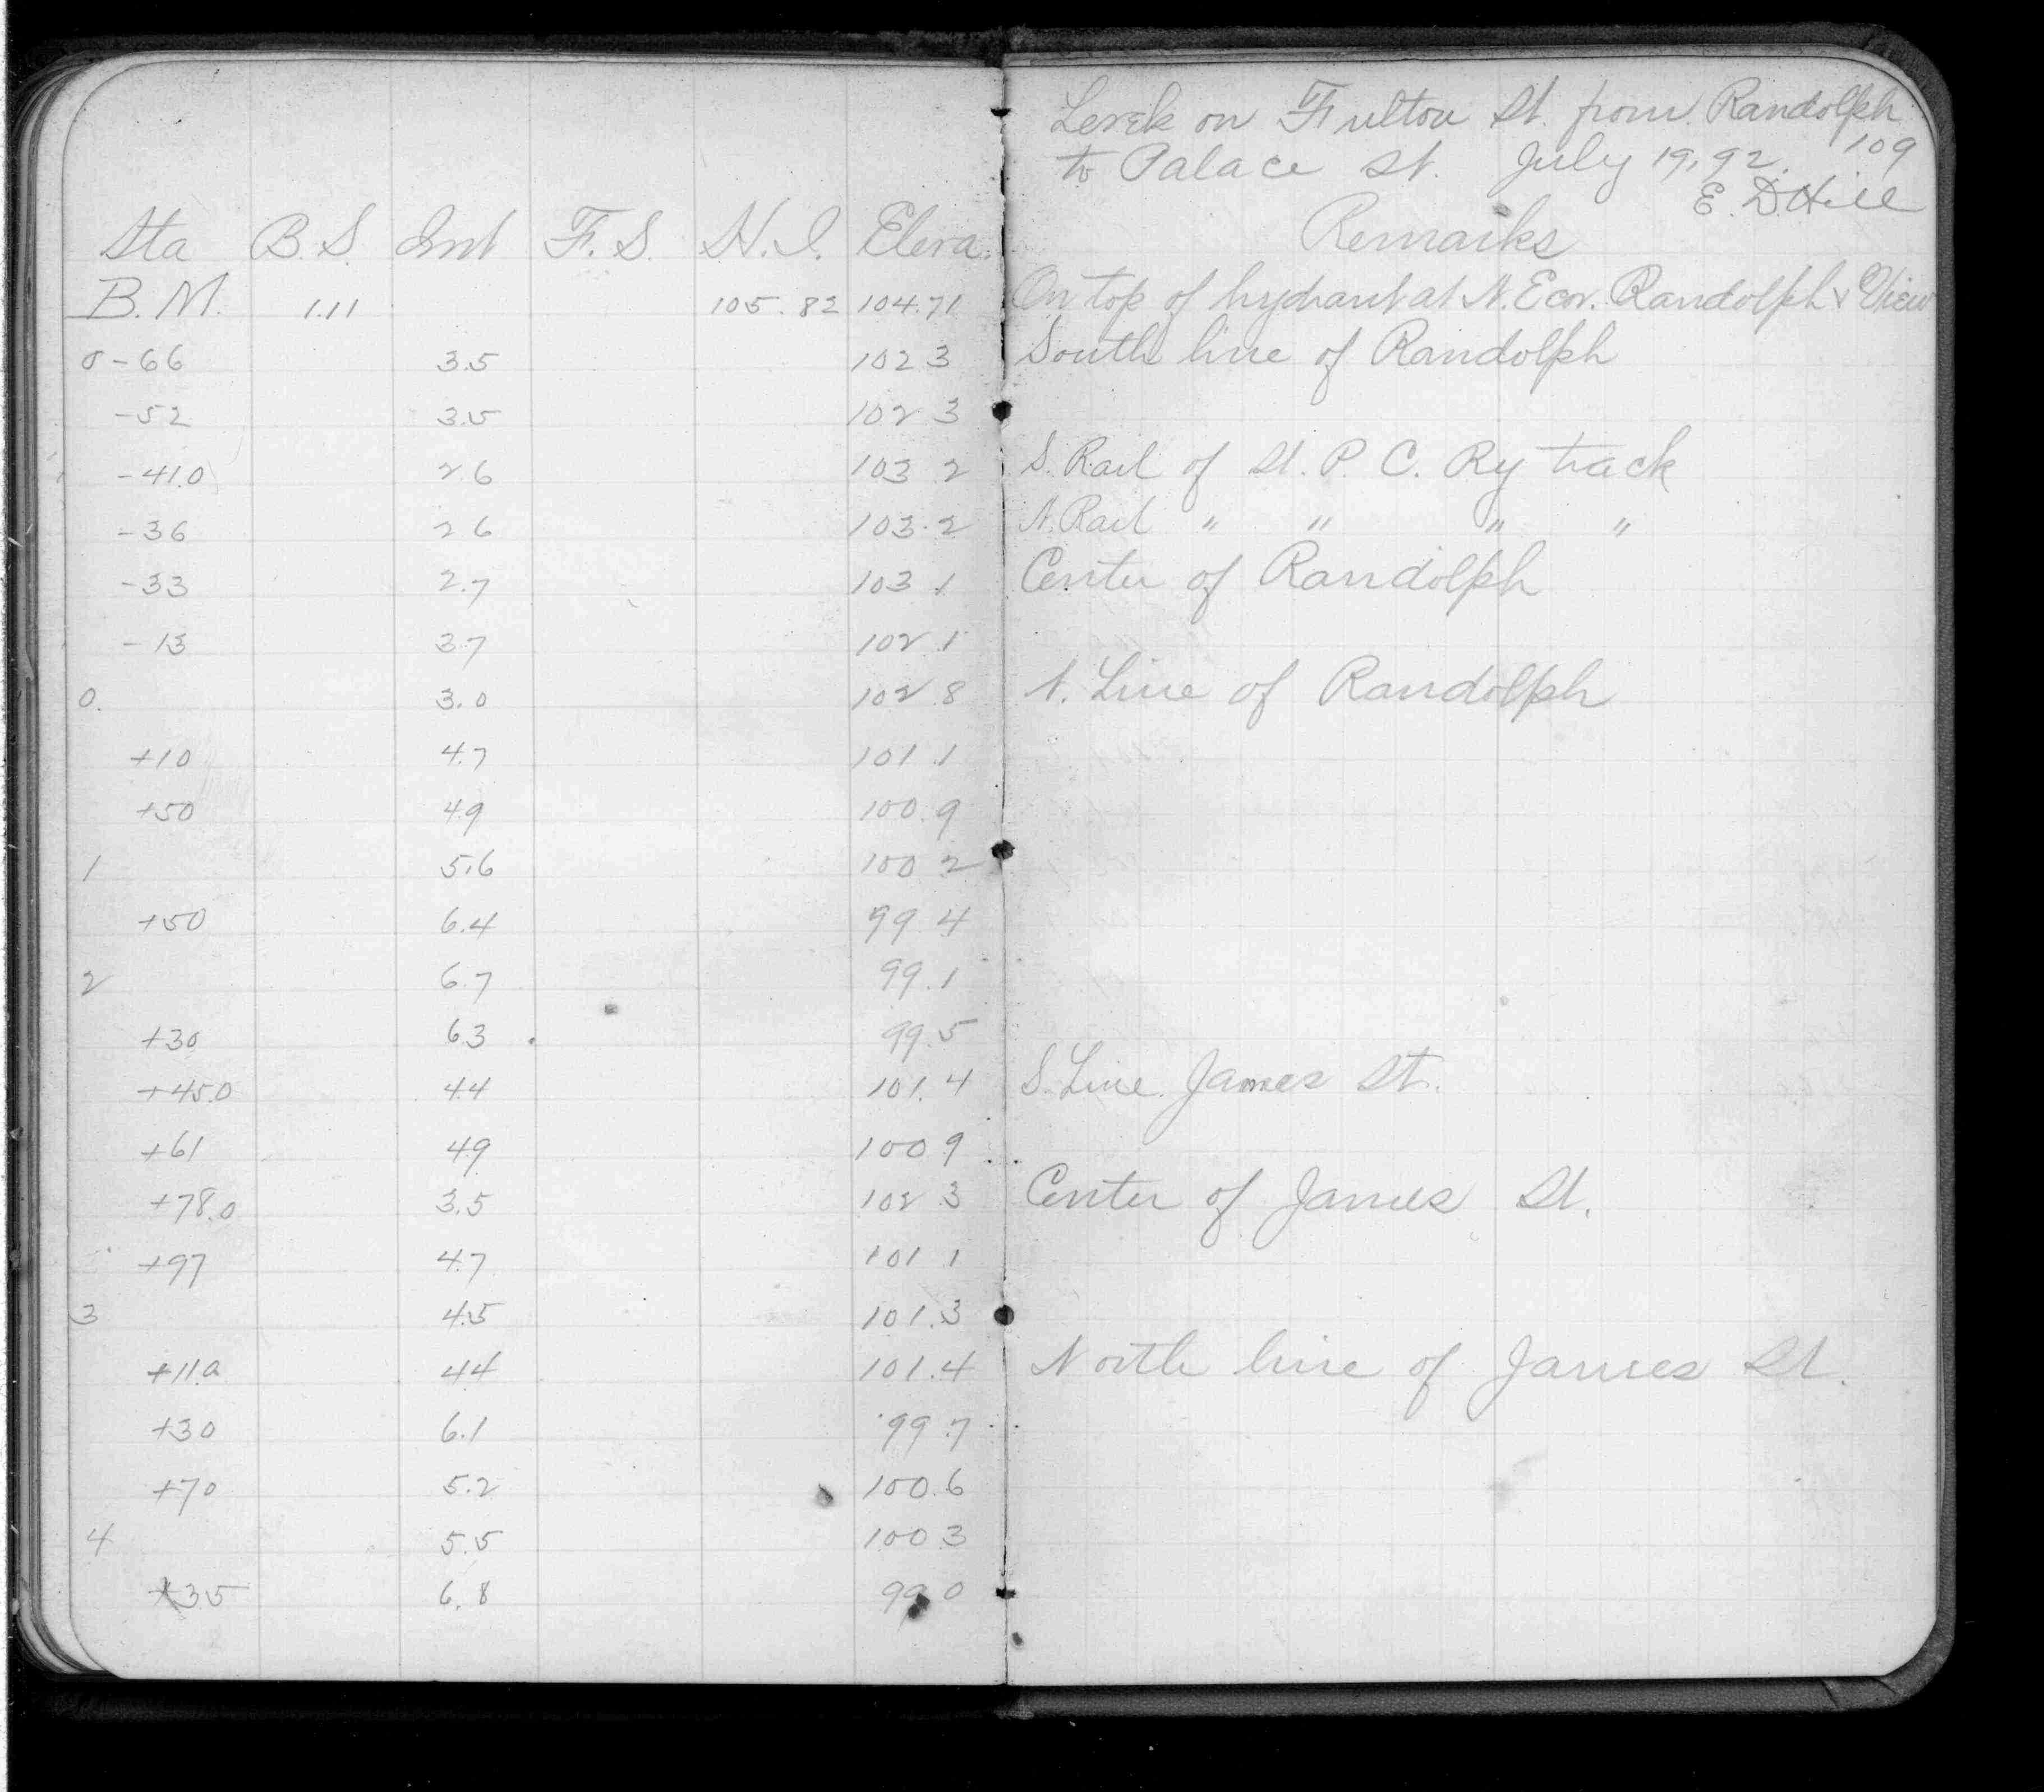 Levels on Fulton St. from Randolph
to Palace St. July 19, 92. 109
E. D. Hill
Sta B.S. Int F.S. H.I. Eleva. Remarks
B.M. 1.11 105.82 104.71 On top of hydrant at N.E cor. Randolph & View
0-66 3.5 102 3 South line of Randolph
-52 3.5 102 3
-41.0 2.6 103 2 S. Rail of St. P. C. Ry track
-36 2 6 103.2 N. Rail " " " "
-33 2.7 103 1 Center of Randolph
-13 3.7 102.1
0. 3.0 102.8 N. Line of Randolph
+10 4.7 101.1
+50 4.9 100.9
1 5.6 100 2
+50 6.4 99 4
2 6.7 99.1
+30 6.3 99.5
+45.0 4.4 101.4 S. Line James St.
+61 4.9 100 9
+78.0 3.5 102 3 Center of James St.
+97 4.7 101 1
3 4.5 101.3
+11.0 4.4 101.4 North line of James St.
+30 6.1 99.7
+70 5.2 100.6
4 5.5 100 3
+35 6.8 99.0